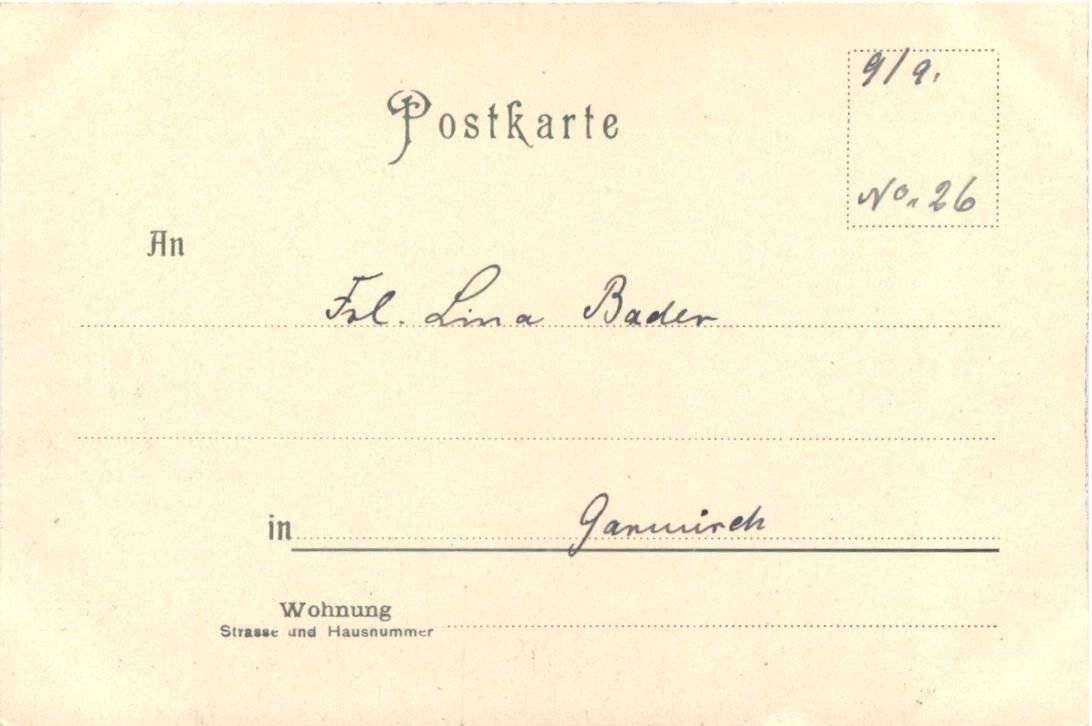 9/9.
Postkarte
No. 26
An
Frl. Lina Bader
in Garmisch
Wohnung
Strasse und Hausnummer